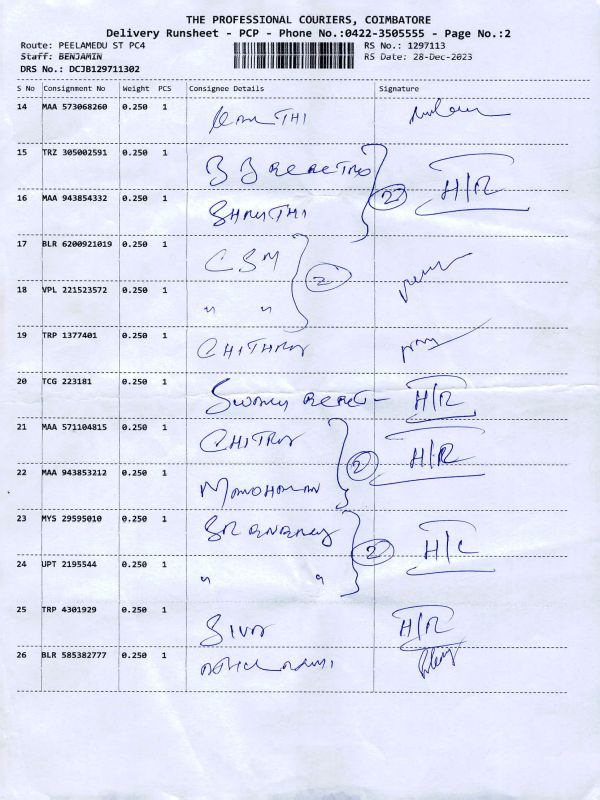 THE PROFESSIONAL COURIERS, COIMBATORE
Delivery Runsheet - PCP - Phone No.:0422-3505555 - Page No.:2
Route: PEELAMEDU ST PC4 RS No.: 1297113
Staff: BENJAMIN RS Date: 28-Dec-2023
DRS No.: DCJB129711302
S No Consignment No Weight PCS Consignee Details Signature
14 MAA 573068260 0.250 1
15 TRZ 305002591 0.250 1 H/R
16 MAA 943854332 0.250 1 SHRUTHI 2
17 BLR 6200921019 0.250 1 CSM
18 VPL 221523572 0.250 1 " " 2
19 TRP 1377401 0.250 1 CHITHRA
20 TCG 223181 0.250 1 H/R
21 MAA 571104815 0.250 1 CHITRA H/R
22 MAA 943853212 0.250 1 MANOHARAN 2
23 MYS 29595010 0.250 1
24 UPT 2195544 0.250 1 " " 2 H/C
25 TRP 4301929 0.250 1 SIVA H/R
26 BLR 585382777 0.250 1